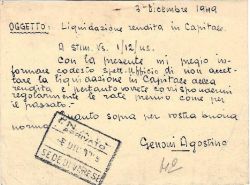 3 Dicembre 1949
OGGETTO: Liquidazione rendita in Capitale.
A stim. B. 1/12/us.
Con la presente mi pregio in-
formare codesto spett. Ufficio di non accet-
tare la liquidazione in Capitale della
rendita e pertanto vorrete corrispondermi
regolarmente le rate premio come per
il passato.
Tanto sopra per vostra buona
norma.
Genoni Agostino
ARRIVATO
SEDE DI VARESE